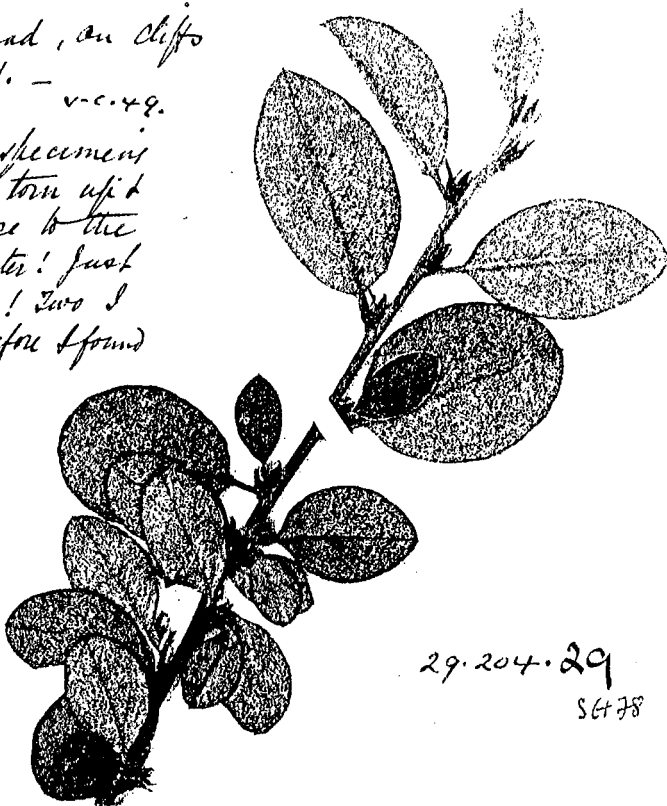 nd, on cliffs
v-c. 49.
specimens
torn up &
e to the
ter! Just
! Two I
fore I found
29.204.29
SH 78